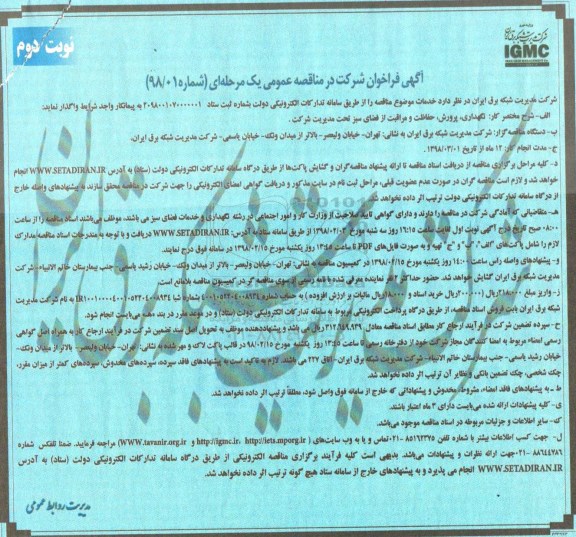 نوبت دوم
IGMC
آگهی فراخوان شرکت در مناقصه عمومی یک مرحله‌ای (شماره ۹۸/۰۱)
شرکت مدیریت شبکه برق ایران در نظر دارد خدمات موضوع مناقصه را از طریق سامانه تدارکات الکترونیکی دولت بشماره ثبت ستاد به پیمانکار واجد شرایط واگذار نماید:
الف- شرح مختصر کار: نگهداری، پرورش، حفاظت و مراقبت از فضای سبز تحت مدیریت شرکت.
ب- دستگاه مناقصه گزار: شرکت مدیریت شبکه برق ایران به نشانی: تهران- خیابان ولیعصر- بالاتر از میدان ونک- خیابان یاسمی- شرکت مدیریت شبکه برق ایران.
ج- مدت انجام کار: ۱۲ ماه از تاریخ ۱۳۹۸/۰۳/۰۱.
د- کلیه مراحل برگزاری مناقصه از دریافت اسناد مناقصه تا ارائه پیشنهاد مناقصه‌گران و گشایش پاکت‌ها از طریق درگاه سامانه تدارکات الکترونیکی دولت (ستاد) به آدرس WWW.SETADIRAN.IR انجام
خواهد شد و لازم است مناقصه گران در صورت عدم عضویت قبلی، مراحل ثبت نام در سایت مذکور و دریافت گواهی امضای الکترونیکی را جهت شرکت در مناقصه محقق سازند به پیشنهادهای واصله خارج
از درگاه سامانه تدارکات الکترونیکی دولت ترتیب اثر داده نخواهد شد.
ه- متقاضیانی که آمادگی شرکت در مناقصه را دارند و دارای گواهی تایید صلاحیت از وزارت کار و امور اجتماعی در رشته نگهداری و خدمات فضای سبز می باشند، موظف می‌باشند اسناد مناقصه را از ساعت
۰۸:۰۰ صبح تاریخ درج آگهی نوبت اول لغایت ساعت ۱۶:۱۵ روز سه شنبه مورخ ۱۳۹۸/۰۲/۰۳ از طریق سامانه ستاد به آدرس: WWW.SETADIRAN.IR دریافت و با توجه به مندرجات اسناد مناقصه مدارک
لازم را شامل پاکت‌های "الف"، "ب" و "ج" تهیه و به صورت فایل‌های PDF تا ساعت ۱۳:۴۵ روز یکشنبه مورخ ۱۳۹۸/۰۲/۱۵ در سامانه فوق درج نمایند.
و- پیشنهادهای واصله راس ساعت ۱۴:۰۰ روز یکشنبه مورخ ۱۳۹۸/۰۲/۱۵ در کمیسیون مناقصه به نشانی: تهران- خیابان ولیعصر- بالاتر از میدان ونک- خیابان رشید یاسمی- جنب بیمارستان خاتم الانبیاء- شرکت
مدیریت شبکه برق ایران گشایش خواهد شد. حضور حداکثر ۲ نفر نماینده معرفی شده با نامه رسمی از سوی مناقصه گر در کمیسیون مناقصه بلامانع است.
ح- سپرده تضمین شرکت در فرآیند ارجاع کار مطابق اسناد مناقصه معادل ۳۱۲/۵۸۹/۹۳۹ ریال می باشد و پیشنهاددهنده موظف به تحویل اصل سند تضمین شرکت در فرآیند ارجاع کار به همراه اصل گواهی
رسمی امضاء مربوط به امضاء کنندگان مجاز شرکت خود از دفترخانه رسمی تا ساعت ۱۳:۴۵ روز یکشنبه مورخ ۹۸/۰۲/۱۵ در قالب پاکت لاک و مهر شده به نشانی: تهران- خیابان ولیعصر- بالاتر از میدان ونک-
خیابان رشید یاسمی- جنب بیمارستان خاتم الانبیاء- شرکت مدیریت شبکه برق ایران- اتاق ۲۲۷ می باشند. لازم به تاکید است به پیشنهادهای فاقد سپرده، سپرده‌های مخدوش، سپرده‌های کمتر از میزان مقرر،
چک شخصی، چک تضمین بانکی و نظایر آن ترتیب اثر داده نخواهد شد.
ط- به پیشنهادهای فاقد امضاء، مشروط، مخدوش و پیشنهاداتی که خارج از سامانه فوق واصل شود، مطلقاً ترتیب اثر داده نخواهد شد.
ی- کلیه پیشنهادات ارائه شده می‌بایست دارای ۳ ماه اعتبار باشند.
ک- سایر اطلاعات و جزئیات مربوطه در اسناد مناقصه موجود می‌باشد.
ل- جهت کسب اطلاعات بیشتر با شماره تلفن ۸۵۱۶۲۳۷۵-۰۲۱ تماس و یا به وب سایت‌های (http://iets.mporg.ir ،http://igmc.ir و WWW.tavanir.org.ir) مراجعه فرمایید. ضمنا تلفکس شماره
۸۸۶۴۴۷۸۶-۰۲۱ جهت ارائه نظرات و پیشنهادات می‌باشد. بدیهی است کلیه فرآیند برگزاری مناقصه الکترونیکی از طریق درگاه سامانه تدارکات الکترونیکی دولت (ستاد) به آدرس
WWW.SETADIRAN.IR انجام می پذیرد و به پیشنهادهای خارج از سامانه ستاد هیچ گونه ترتیب اثر داده نخواهد شد.
مدیریت روابط عمومی